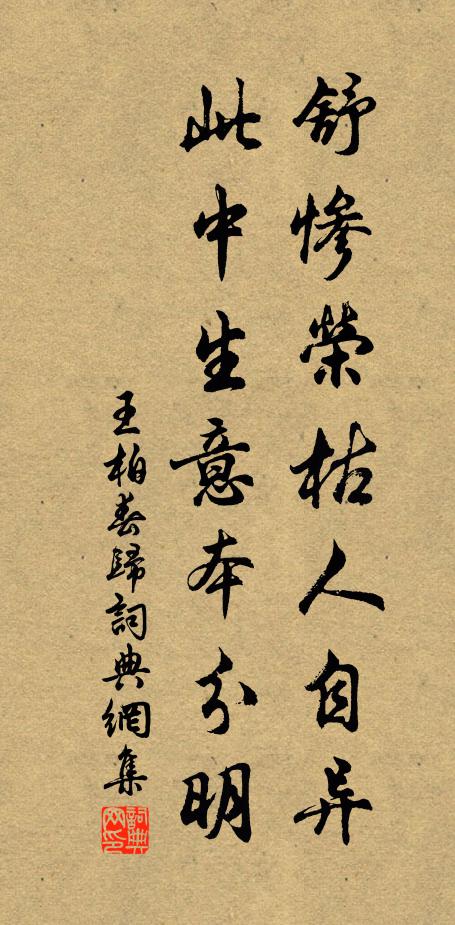 舒惨榮枯人自异
此中生意本分明
王柏春歸詞典網集
詞典網印